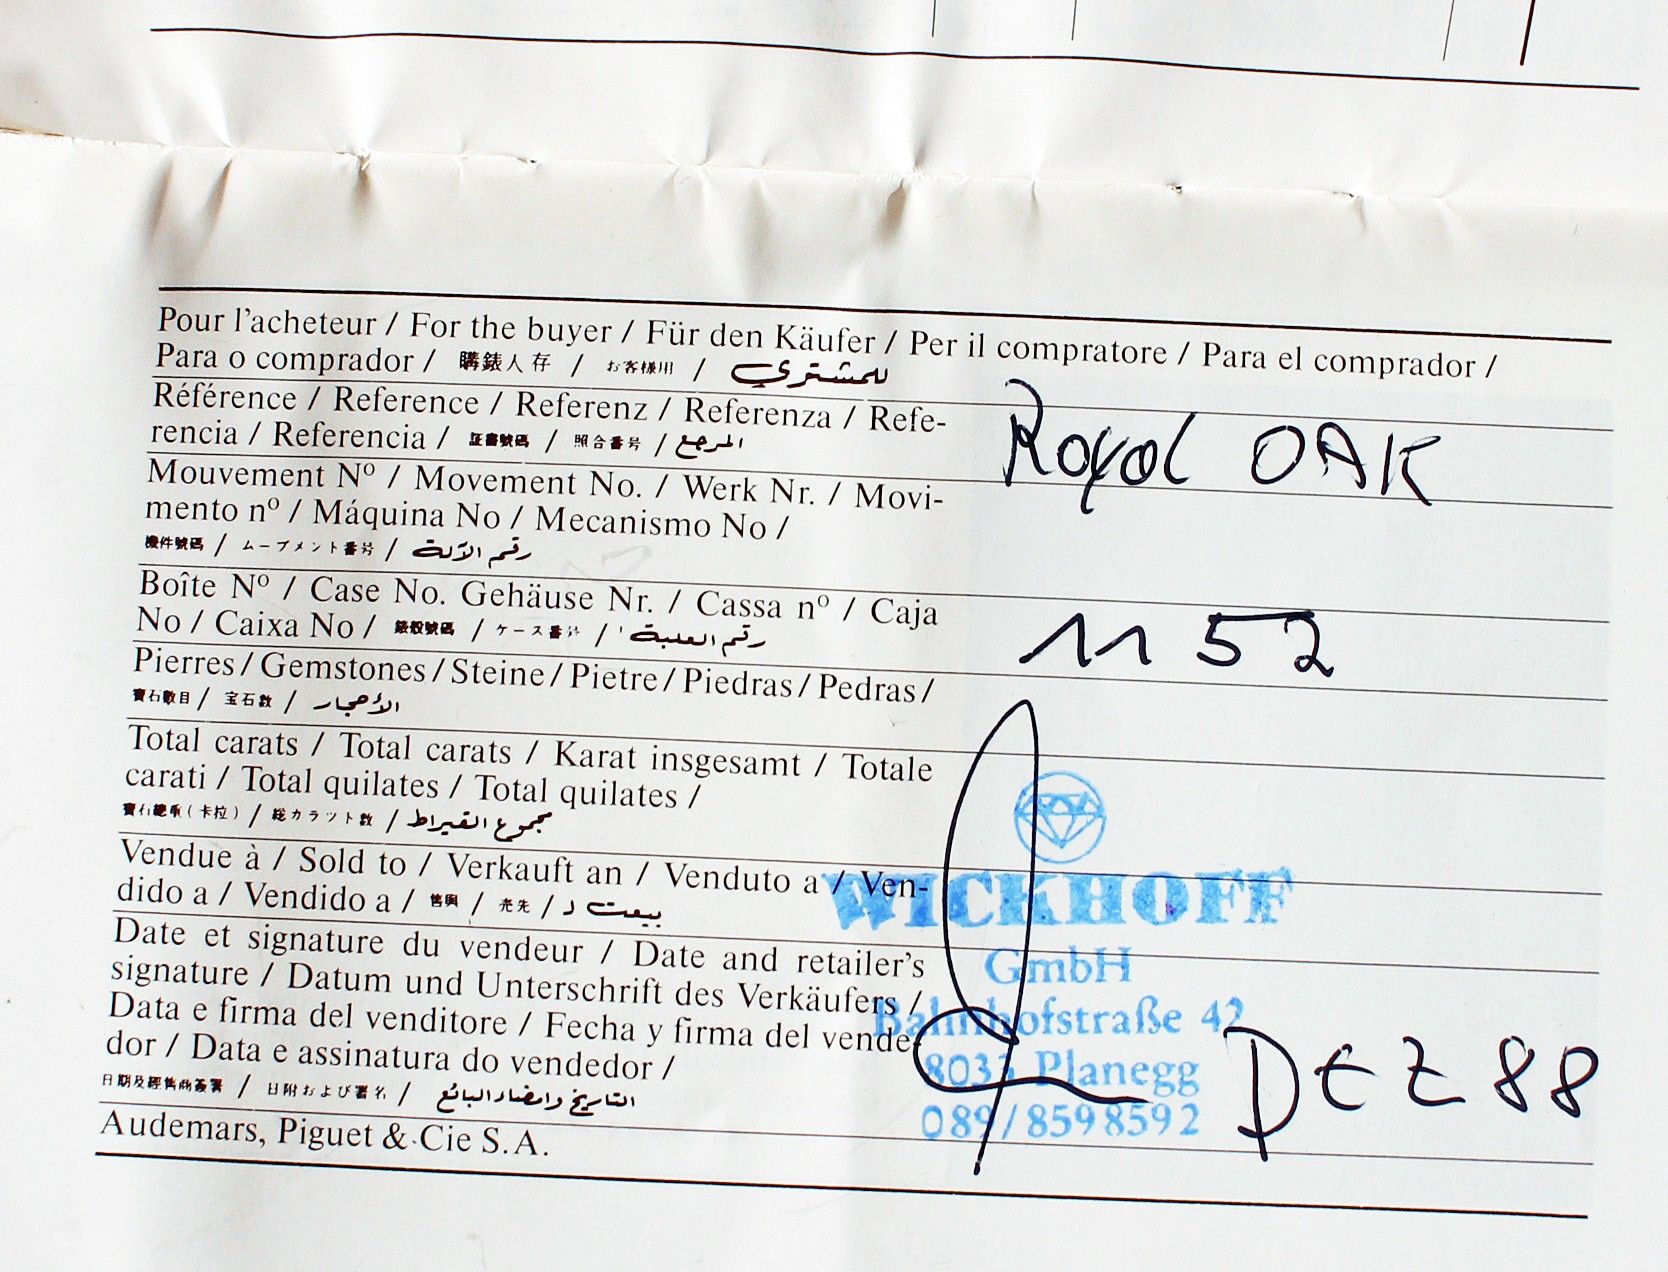 Pour l'acheteur / For the buyer / Für den Käufer / Per il compratore / Para el comprador /
Para o comprador / 購錶人存 / お客様用 / للمشتري
Référence / Reference / Referenz / Referenza / Refe-
rencia / Referencia / 証書號碼 / 照合番号 / المرجع
Royal OAK
Mouvement Nº / Movement No. / Werk Nr. / Movi-
mento nº / Máquina No / Mecanismo No /
機件號碼 / ムーブメント番号 / رقم الآلة
Boîte Nº / Case No. Gehäuse Nr. / Cassa nº / Caja
No / Caixa No / 錶殼號碼 / ケース番号 / رقم العلبة
1152
Pierres / Gemstones / Steine / Pietre / Piedras / Pedras /
寶石數目 / 宝石数 / الأحجار
Total carats / Total carats / Karat insgesamt / Totale
carati / Total quilates / Total quilates /
寶石總重(卡拉) / 総カラット数 / مجموع القيراط
Vendue à / Sold to / Verkauft an / Venduto a / Ven-
dido a / Vendido a / 售與 / 売先 / بيعت لـ
Date et signature du vendeur / Date and retailer's
signature / Datum und Unterschrift des Verkäufers /
Data e firma del venditore / Fecha y firma del vende-
dor / Data e assinatura do vendedor /
日期及經售商簽署 / 日附および署名 / التاريخ وامضاء البائع
WICKHOFF
GmbH
Bahnhofstraße 42
8033 Planegg
089/8598592
DEZ 88
Audemars, Piguet & Cie S.A.